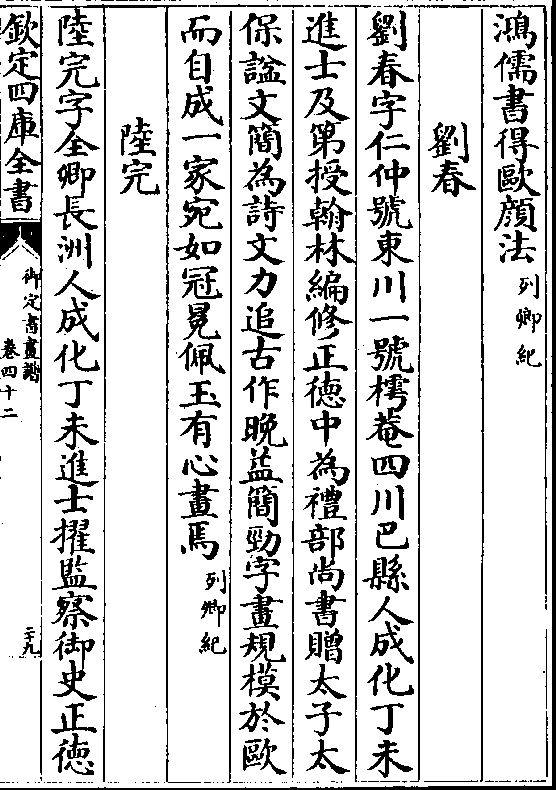 鴻儒書得歐顔法列卿紀
劉春
劉春字仁仲號東川一號樗菴四川巴縣人成化丁未
進士及第授翰林編修正德中為禮部尚書贈太子太
保諡文簡為詩文力追古作晚益簡勁字畫規模於歐
而自成一家宛如冠冕佩玉有心畫焉列卿紀
陸完
陸完字全卿長洲人成化丁未進士擢監察御史正德
欽定四庫全書
御定書畫譜
卷四十二
二十九